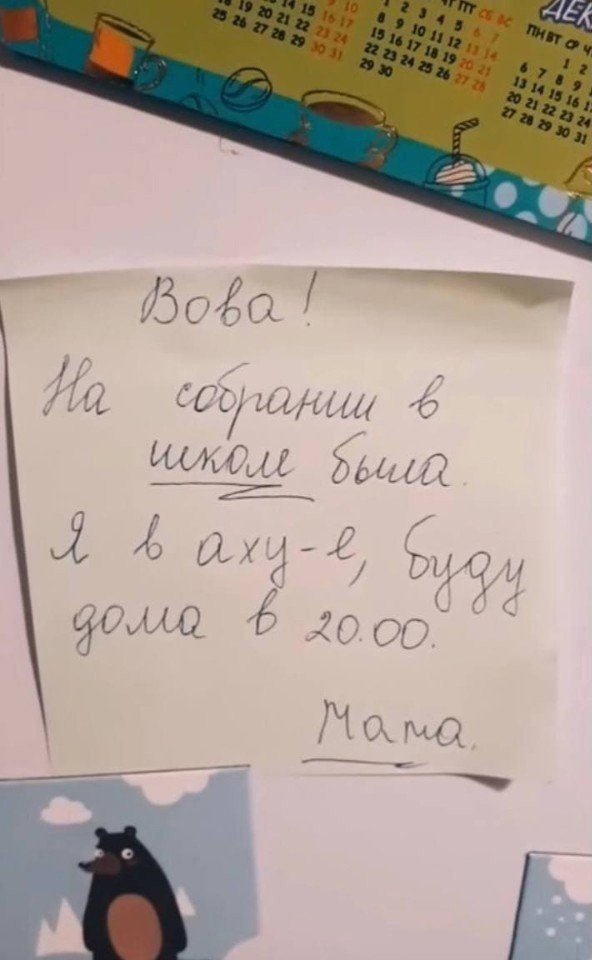 18 19 20 21 22 23 24
25 26 27 28 29 30 31
1 2 3 4 5 6 7
8 9 10 11 12 13 14
15 16 17 18 19 20 21
22 23 24 25 26 27 28
29 30
ДЕК
ПН ВТ СР
1 2
6 7 8 9
13 14 15 16
20 21 22 23 24
27 28 29 30 31
Вова!
На собрании в
школе была.
Я в аху-е, буду
дома в 20.00.
Мама.